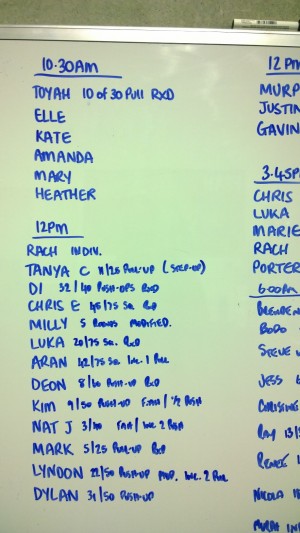 10.30AM
TOYAH 10 of 30 PULL RXD
ELLE
KATE
AMANDA
MARY
HEATHER
12PM
RACH INDIV.
TANYA C 11/25 PULL-UP (STEP-UP)
DI 32/40 PUSH-UPS RXD
CHRIS E 45/75 SQ. RXD
MILLY 5 ROUNDS MODIFIED.
LUKA 20/75 SQ. RXD
ARAN 42/75 SQ. INC. 1 PULL
DEON 8/40 PUSH-UP RXD
KIM 9/50 PUSH-UP 1/2 PUSH
NAT J 3/40 INC. 2 PUSH
MARK 5/25 PULL-UP RXD
LYNDON 22/50 PUSH-UP INC. 2 PULL
DYLAN 31/50 PUSH-UP
12 PM
MURP
JUSTIN
GAVIN
3.45P
CHRIS
LUKA
MARIE
RACH
PORTER
6:00PM
BRENDEN
BODO
STEVE
JESS
CHRISTINE
RAY 13/
RENEE
NICOLA